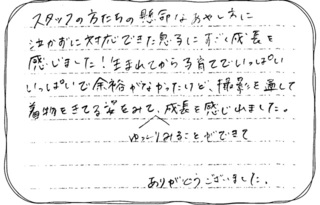 スタッフの方たちの懸命なあやしえに
泣かずに対応できた息子にすごく成長を
感じました！生まれてから子育てでいっぱい
いっぱいで余裕がなかったけど、撮影を通して
着物をきてる姿をみて、成長を感じれました。
ゆっくりみることができて
ありがとうございました。